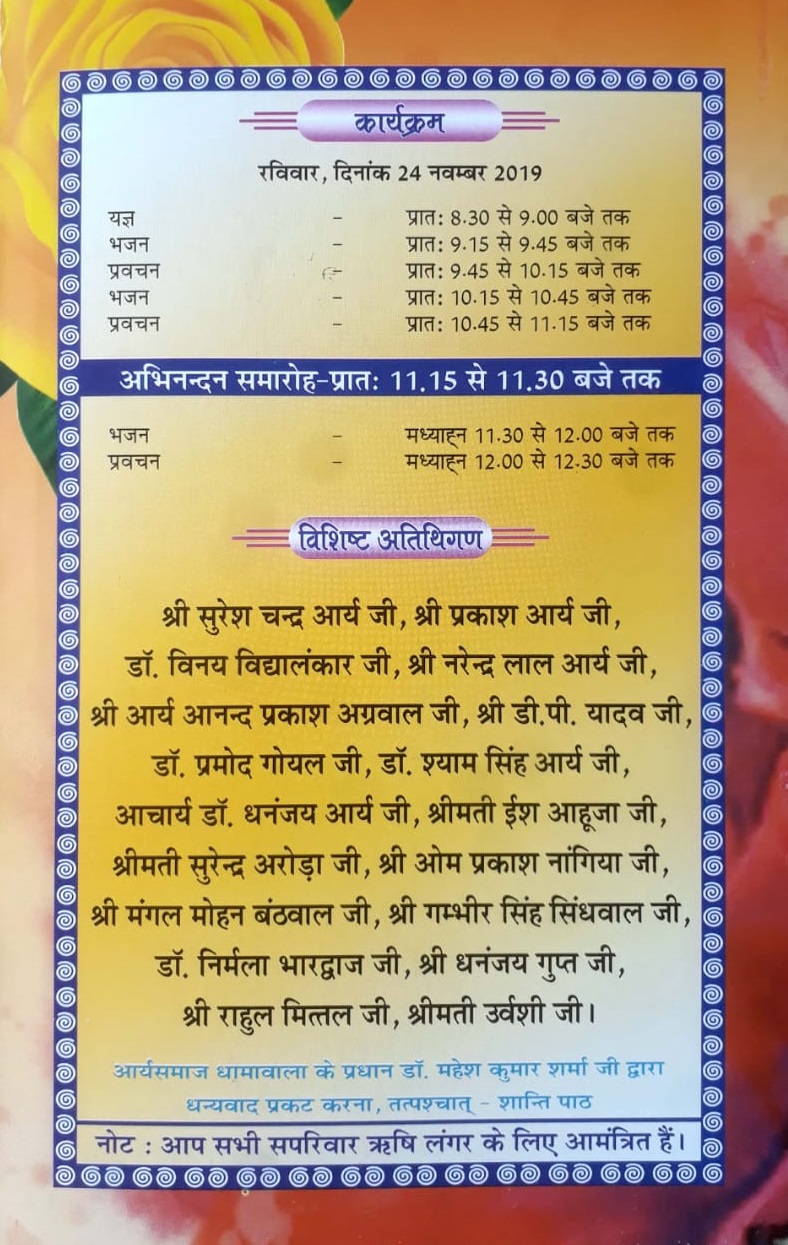 कार्यक्रम
रविवार, दिनांक 24 नवम्बर 2019
यज्ञ - प्रातः 8.30 से 9.00 बजे तक
भजन - प्रातः 9.15 से 9.45 बजे तक
प्रवचन - प्रातः 9.45 से 10.15 बजे तक
भजन - प्रातः 10.15 से 10.45 बजे तक
प्रवचन - प्रातः 10.45 से 11.15 बजे तक
अभिनन्दन समारोह-प्रातः 11.15 से 11.30 बजे तक
भजन - मध्याह्न 11.30 से 12.00 बजे तक
प्रवचन - मध्याह्न 12.00 से 12.30 बजे तक
विशिष्ट अतिथिगण
श्री सुरेश चन्द्र आर्य जी, श्री प्रकाश आर्य जी,
डॉ. विनय विद्यालंकार जी, श्री नरेन्द्र लाल आर्य जी,
श्री आर्य आनन्द प्रकाश अग्रवाल जी, श्री डी.पी. यादव जी,
डॉ. प्रमोद गोयल जी, डॉ. श्याम सिंह आर्य जी,
आचार्य डॉ. धनंजय आर्य जी, श्रीमती ईश आहूजा जी,
श्रीमती सुरेन्द्र अरोड़ा जी, श्री ओम प्रकाश नांगिया जी,
श्री मंगल मोहन बंठवाल जी, श्री गम्भीर सिंह सिंधवाल जी,
डॉ. निर्मला भारद्वाज जी, श्री धनंजय गुप्त जी,
श्री राहुल मित्तल जी, श्रीमती उर्वशी जी।
आर्यसमाज धामावाला के प्रधान डॉ. महेश कुमार शर्मा जी द्वारा
धन्यवाद प्रकट करना, तत्पश्चात् - शान्ति पाठ
नोट : आप सभी सपरिवार ऋषि लंगर के लिए आमंत्रित हैं।